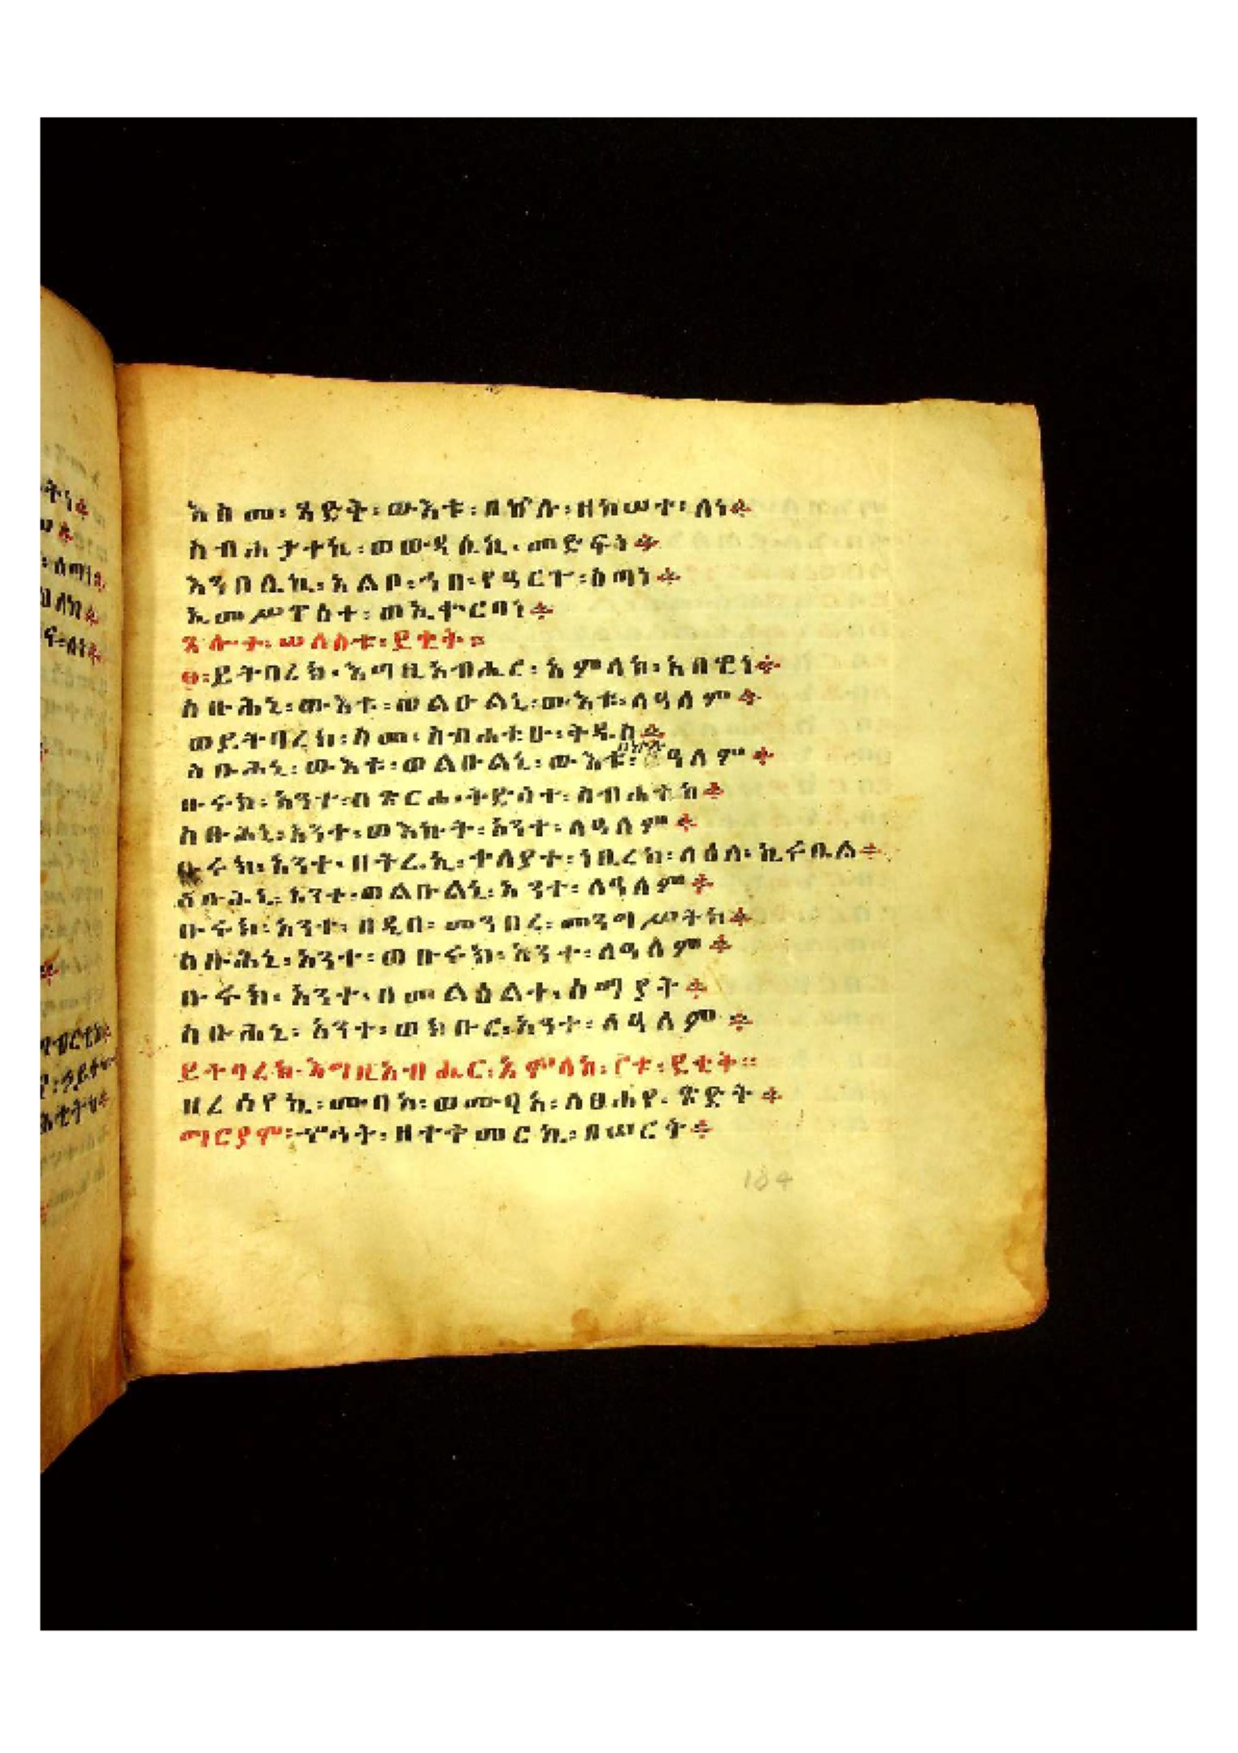 እስመ፡ ጻድቅ፡ ውእቱ፡ በኵሉ፡ ዘከሠተ፡ ለነ
ስብሐታተኪ፡ ወውዳሴኪ፡ መድፍነ
እንበሌኪ፡ አልቦ፡ ኀበ፡ የዓርጉ፡ ዕጣነ
ኢመሥዋዕተ፡ ወኢቍርባነ
ጸሎተ፡ ሠለስቱ፡ ደቂቅ።
፩፡ ይትባረክ፡ እግዚአብሔር፡ አምላከ፡ አበዊነ
ስቡሕኒ፡ ውእቱ፡ ወልዑልኒ፡ ውእቱ፡ ለዓለም
ወይትባረክ፡ ስመ፡ ስብሐቲሁ፡ ቅዱስ
ስቡሕኒ፡ ውእቱ፡ ወልዑልኒ፡ ውእቱ፡ ለዓለም
ቡሩክ፡ አንተ፡ በጽርሐ፡ ቅድሳተ፡ ስብሐቲከ
ስቡሕኒ፡ አንተ፡ ወእኩት፡ አንተ፡ ለዓለም
ቡሩክ፡ አንተ፡ ዘትሬኢ፡ ቀላያተ፡ ነቢረከ፡ ላዕለ፡ ኪሩቤል
ስቡሕኒ፡ አንተ፡ ወልዑልኒ፡ አንተ፡ ለዓለም
ቡሩክ፡ አንተ፡ ዘዲበ፡ መንበረ፡ መንግሥትከ
ስቡሕኒ፡ አንተ፡ ወቡሩክ፡ አንተ፡ ለዓለም
ቡሩክ፡ አንተ፡ በመልዕልተ፡ ሰማያት
ስቡሕኒ፡ አንተ፡ ወክቡር፡ አንተ፡ ለዓለም
ይትባረክ፡ እግዚአብሔር፡ አምላከ፡ ደቂቅ።
ዘረሰየኪ፡ ሙባአ፡ ወሙፃአ፡ ለፀሐየ፡ ጽድቅ
ማርያም፡ ዘተቀመርኪ፡ በሠርቅ
184